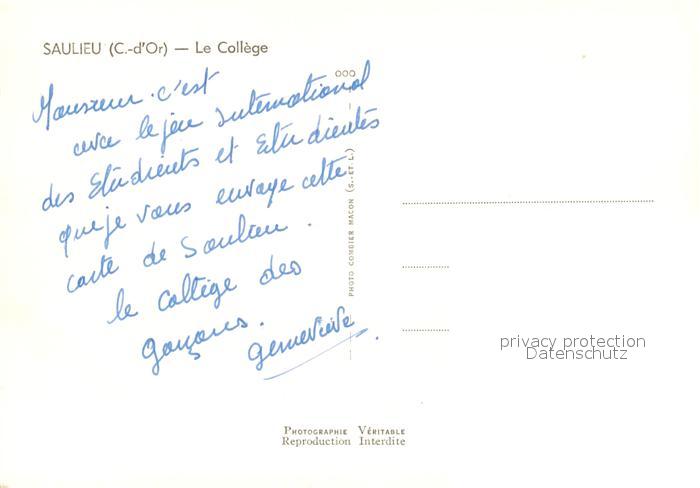 SAULIEU (C.-d'Or) — Le Collège
Monsieur. c'est
avec le jeu International
des Etudients et Etudientes
que je vous envoye cette
carte de Saulieu.
le collège des
garçons.
Genevieve.
PHOTO COMBIER MACON (S.-ET-L.)
privacy protection
Datenschutz
Photographie Véritable
Reproduction Interdite